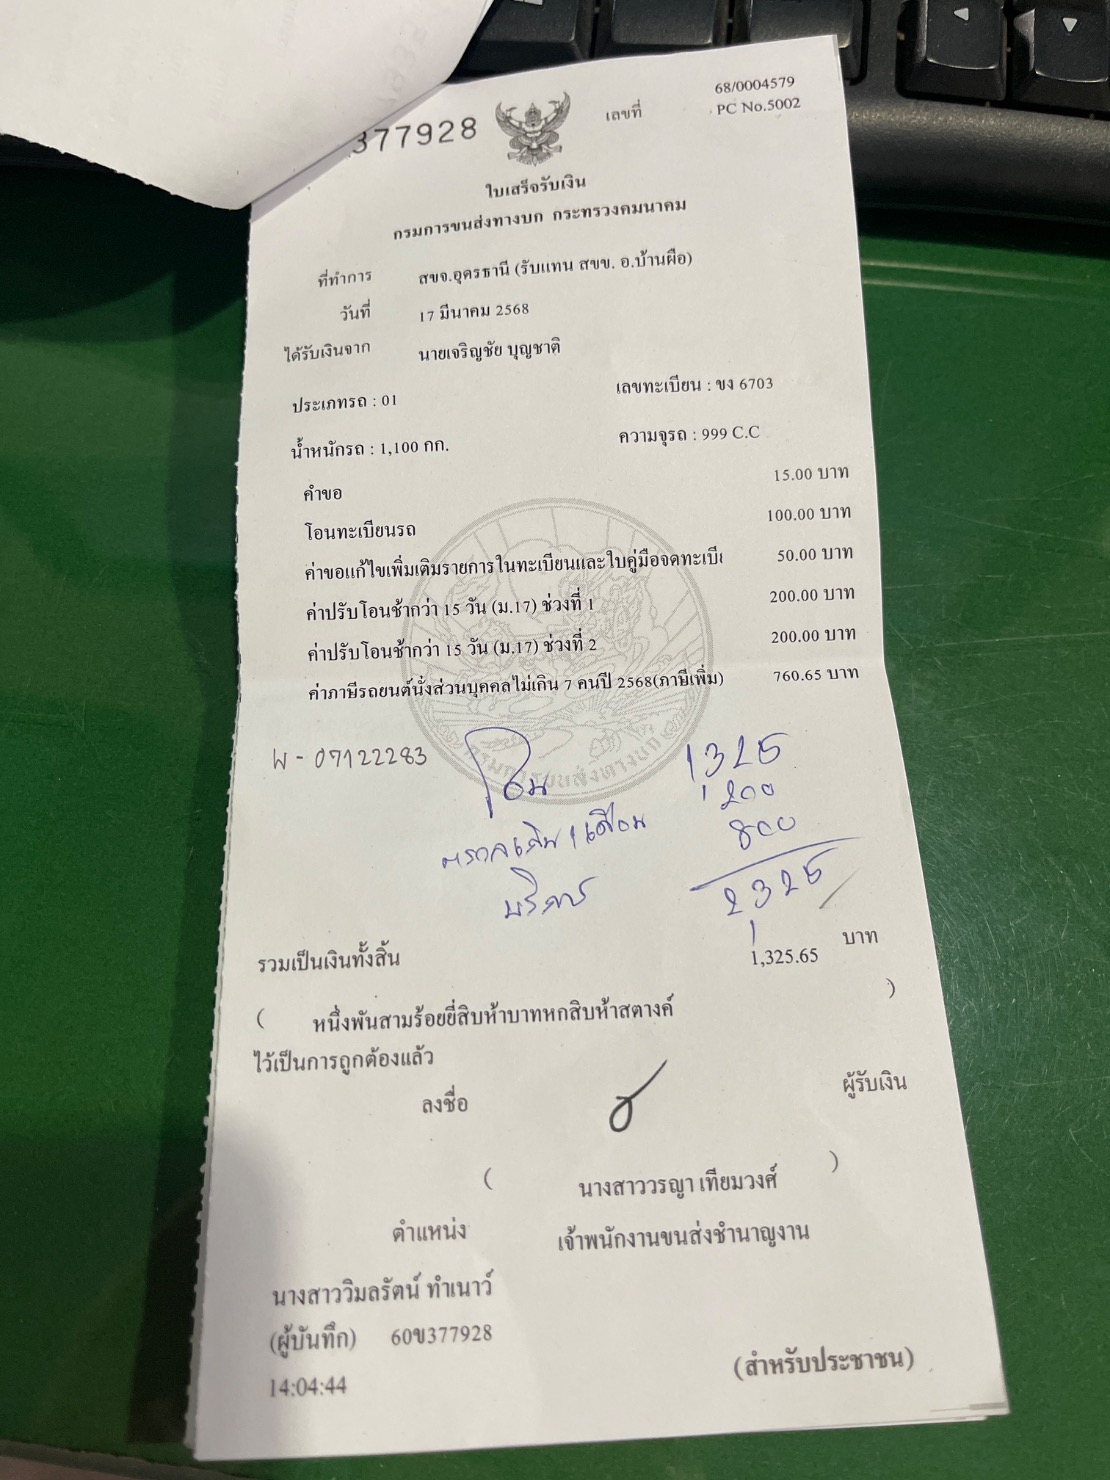 68/0004579
377928 เลขที่ PC No.5002
ใบเสร็จรับเงิน
กรมการขนส่งทางบก กระทรวงคมนาคม
ที่ทำการ สขจ.อุดรธานี (รับแทน สขข. อ.บ้านผือ)
วันที่ 17 มีนาคม 2568
ได้รับเงินจาก นายเจริญชัย บุญชาติ
ประเภทรถ : 01 เลขทะเบียน : ขง 6703
น้ำหนักรถ : 1,100 กก. ความจุรถ : 999 C.C
คำขอ 15.00 บาท
โอนทะเบียนรถ 100.00 บาท
ค่าขอแก้ไขเพิ่มเติมรายการในทะเบียนและใบคู่มือจดทะเบี 50.00 บาท
ค่าปรับโอนช้ากว่า 15 วัน (ม.17) ช่วงที่ 1 200.00 บาท
ค่าปรับโอนช้ากว่า 15 วัน (ม.17) ช่วงที่ 2 200.00 บาท
ค่าภาษีรถยนต์นั่งส่วนบุคคลไม่เกิน 7 คนปี 2568(ภาษีเพิ่ม) 760.65 บาท
กรมการขนส่งทางบก
W - 07122283 โอน 1,325
200
800
บริการ 2,325
รวมเป็นเงินทั้งสิ้น 1,325.65 บาท
( หนึ่งพันสามร้อยยี่สิบห้าบาทหกสิบห้าสตางค์ )
ไว้เป็นการถูกต้องแล้ว
ลงชื่อ ผู้รับเงิน
( นางสาววรญา เทียมวงศ์ )
ตำแหน่ง เจ้าพนักงานขนส่งชำนาญงาน
นางสาววิมลรัตน์ ทำเนาว์
(ผู้บันทึก) 60ข377928
14:04:44 (สำหรับประชาชน)